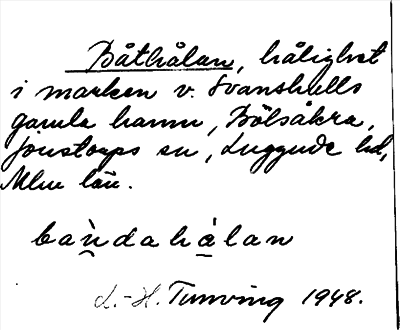 Båthålan, hålighet
i marken v. Svanshalls
gamla hamn, Bölsåkra,
Jonstorps sn, Luggude hd,
Mlm län.
bands hålan
L.-H. Tunving 1948.